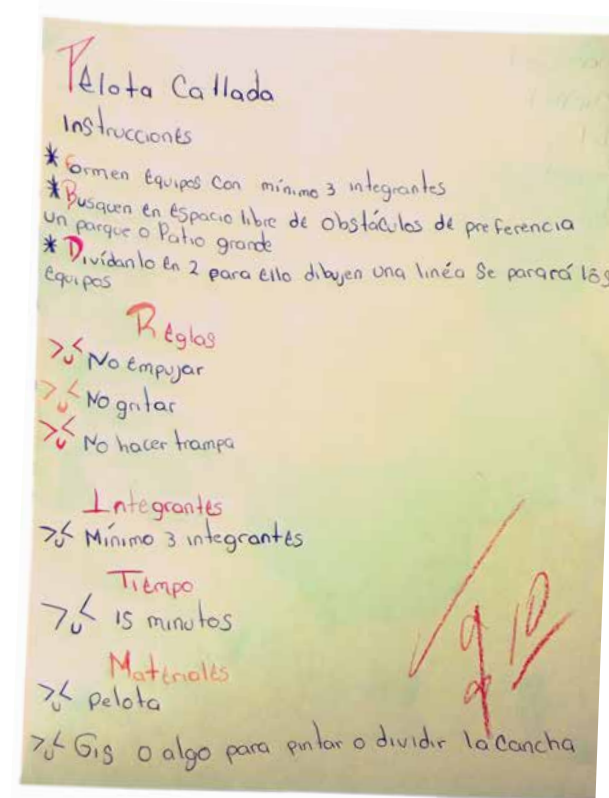 Pelota Callada
Instrucciones
* Formen equipos con mínimo 3 integrantes
* Busquen en espacio libre de obstáculos de preferencia
un parque o Patio grande
* Divídanlo en 2 para ello dibujen una linéa Se parará lós
equipos
Reglas
No empujar
No gritar
No hacer trampa
Integrantes
Mínimo 3 integrantes
Tiempo
15 minutos
Materiales
pelota
Gis o algo para pintar o dividir la cancha
10